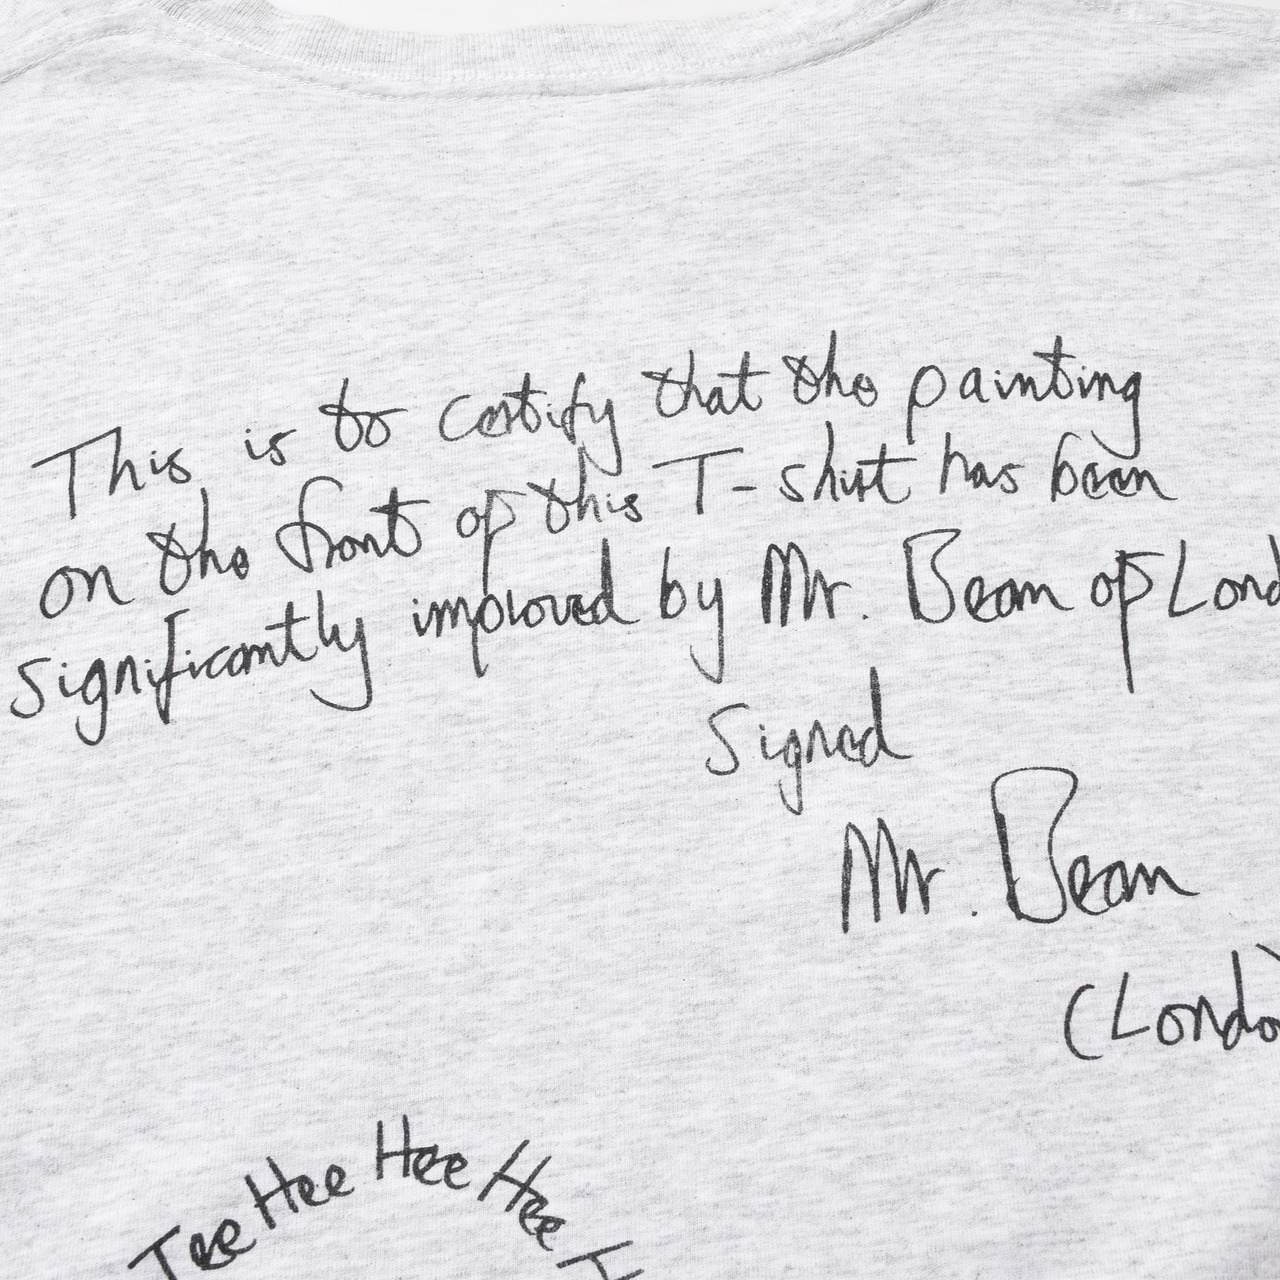 This is to certify that the painting
on the front of this T-shirt has been
significantly improved by Mr. Bean of Lond
Signed
Mr. Bean
(Londo
Tee Hee Hee Hee